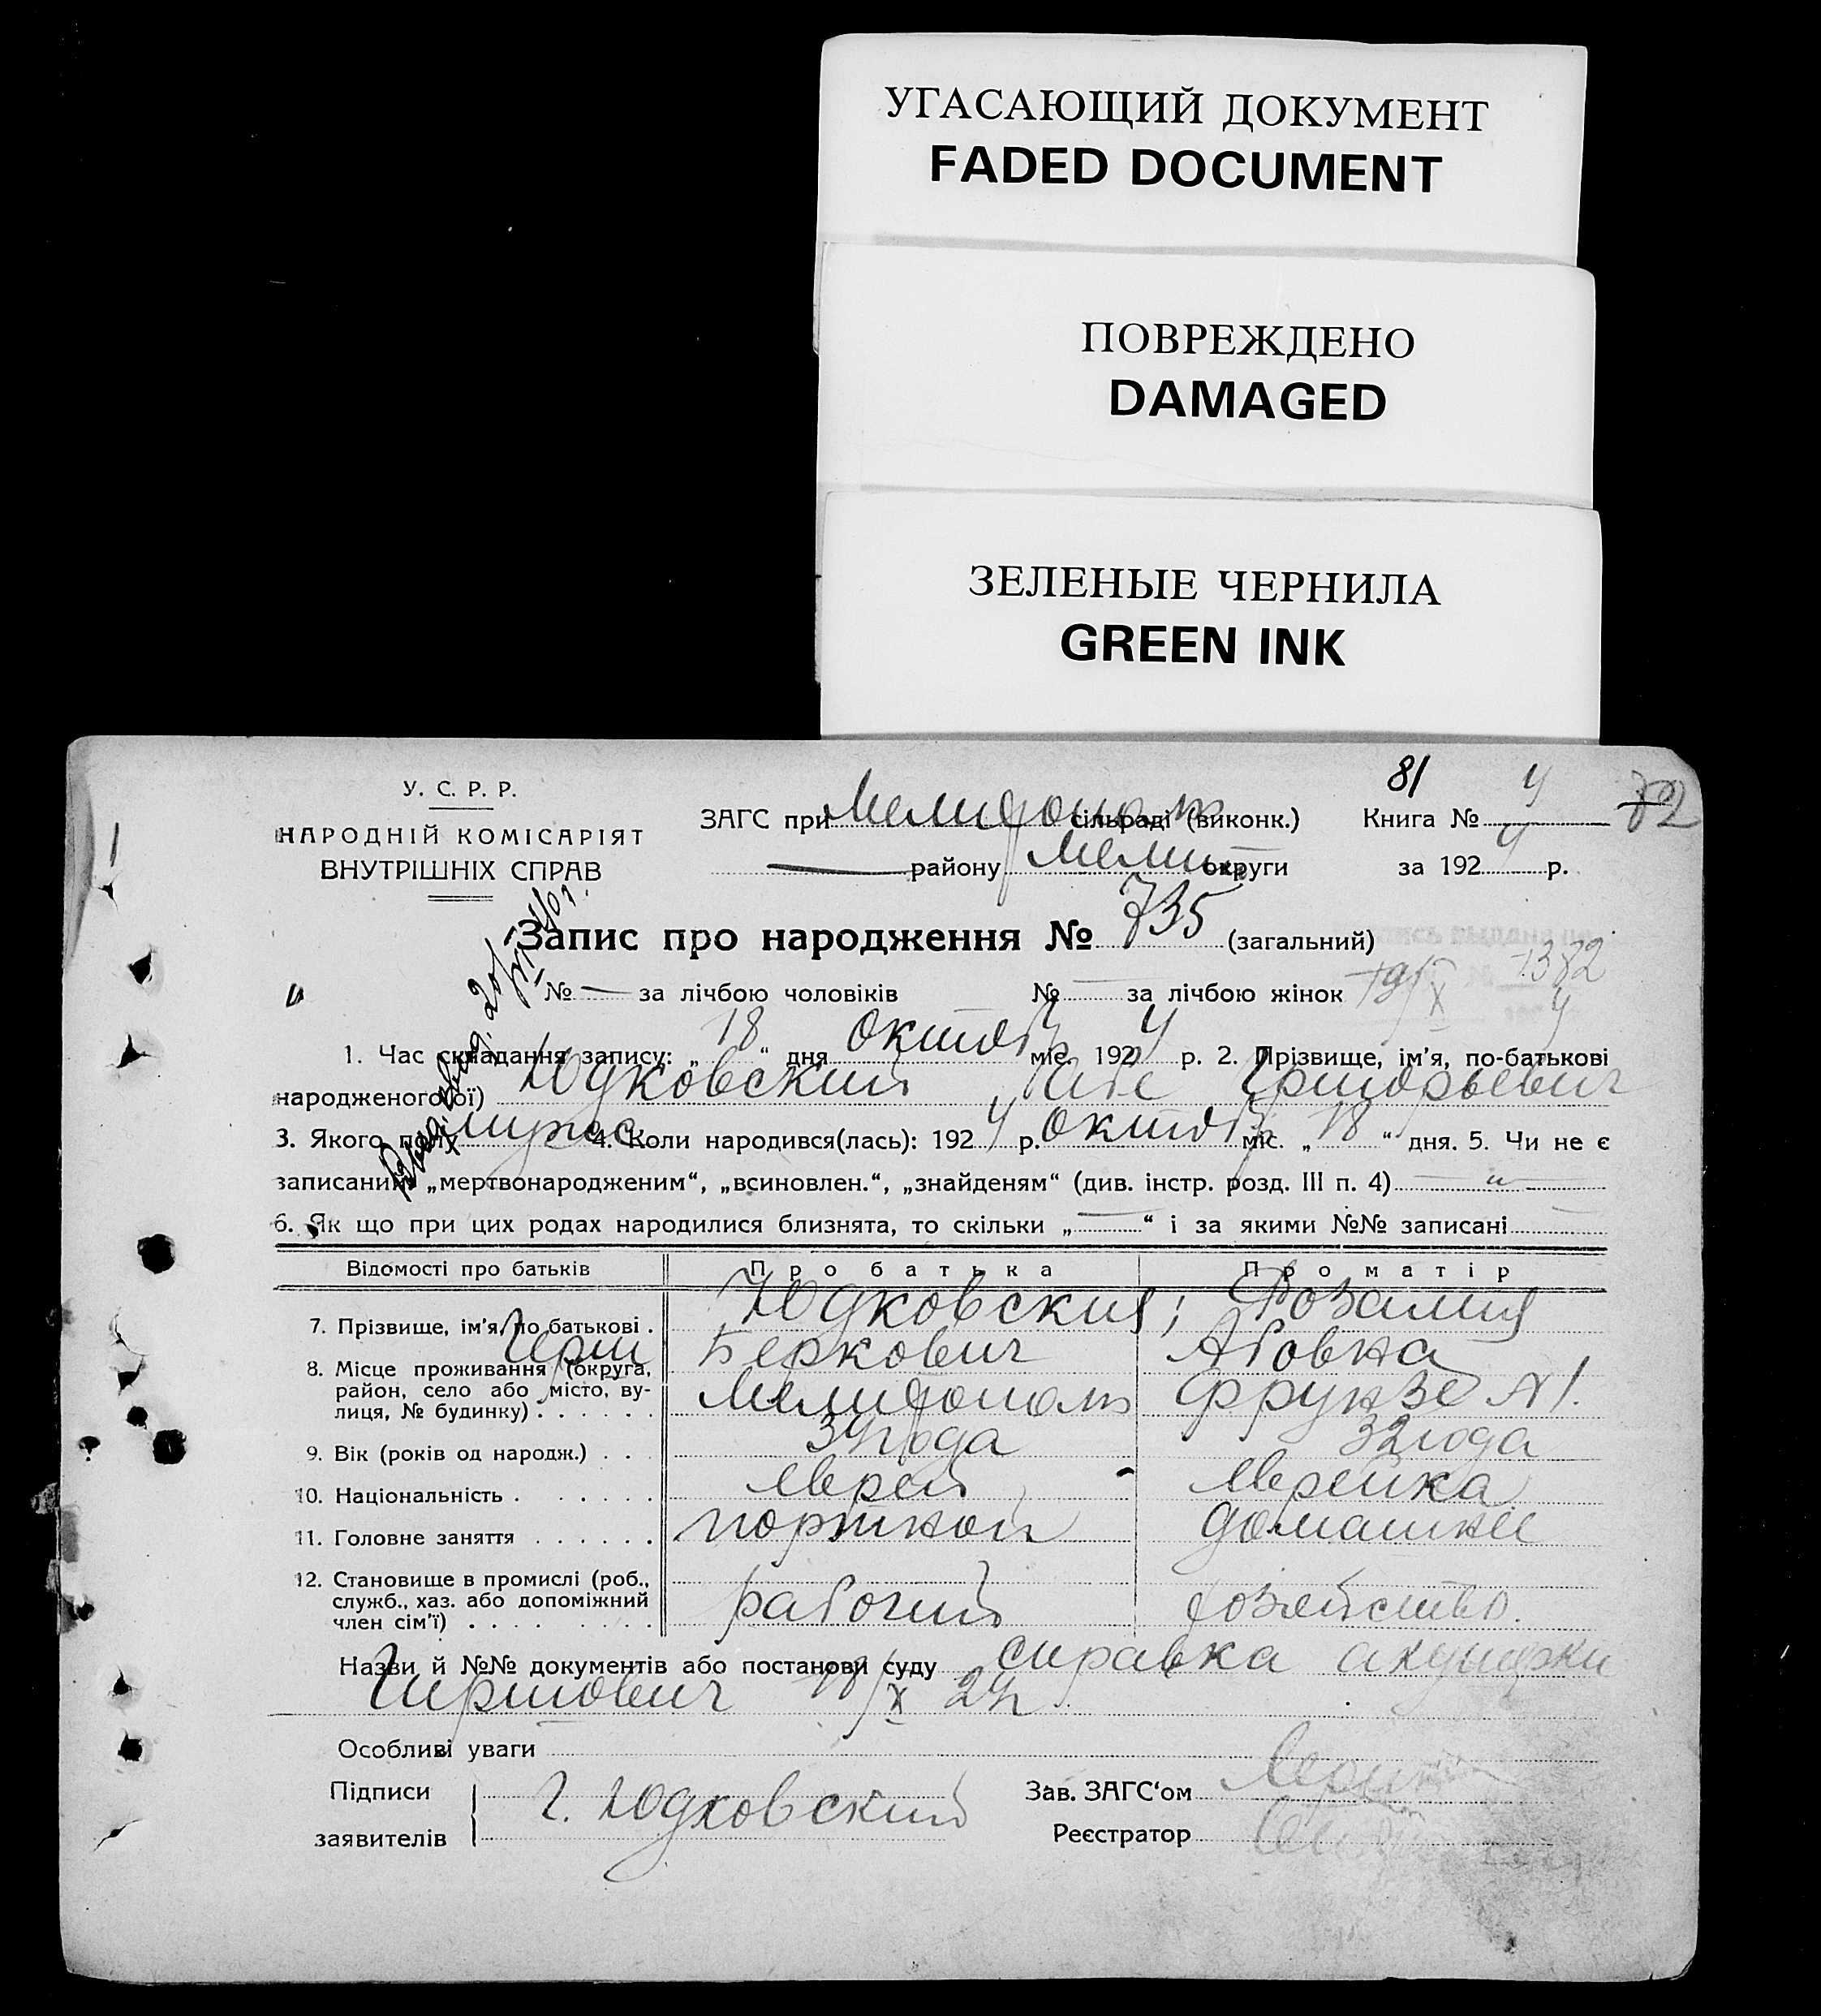 УГАСАЮЩИЙ ДОКУМЕНТ
FADED DOCUMENT
ПОВРЕЖДЕНО
DAMAGED
ЗЕЛЕНЫЕ ЧЕРНИЛА
GREEN INK
81
У. С. Р. Р.
НАРОДНІЙ КОМІСАРІЯТ
ВНУТРІШНІХ СПРАВ
ЗАГС при Мелитополь сільраді (виконк.) Книга № 4 72
— району Мелит округи за 1924 р.
Запис про народження № 735 (загальний)
№ — за лічбою чоловіків № — за лічбою жінок 19/X 1382
1. Час складання запису: „18“ дня октябр міс. 1924 р. 2. Прізвище, ім’я, по-батькові
народженого(ої) Юдковский Абе Григорьевич
3. Якого полу мужс. 4. Коли народився(лась): 1924 р. октябр міс. „18“ дня. 5. Чи не є
записаний „мертвонародженим“, „всиновлен.“, „знайденям“ (див. інстр. розд. III п. 4)
6. Як що при цих родах народилися близнята, то скільки „—“ і за якими №№ записані
Відомості про батьків Про батька Про матір
7. Прізвище, ім’я, по батькові . Юдковский; Розалия
Герш Беркович Абовна
8. Місце проживання (округа,
район, село або місто, ву-
лиця, № будинку) . . . . . . Мелитополь Фрунзе №1.
9. Вік (років од народж.) . . . 34 года 32 года
10. Національність . . . . . . . еврей еврейка
11. Головне заняття . . . . . . портной домашнее
12. Становище в промислі (роб.,
служб., хаз. або допоміжний
член сім’ї) . . . . . . . . . рабочий хозяйство.
Назви й №№ документів або постанови суду справка акушерки
Гиршович 18/X 24
Особливі уваги
Підписи
заявителів Г. Юдковский
Зав. ЗАГС‘ом
Реєстратор